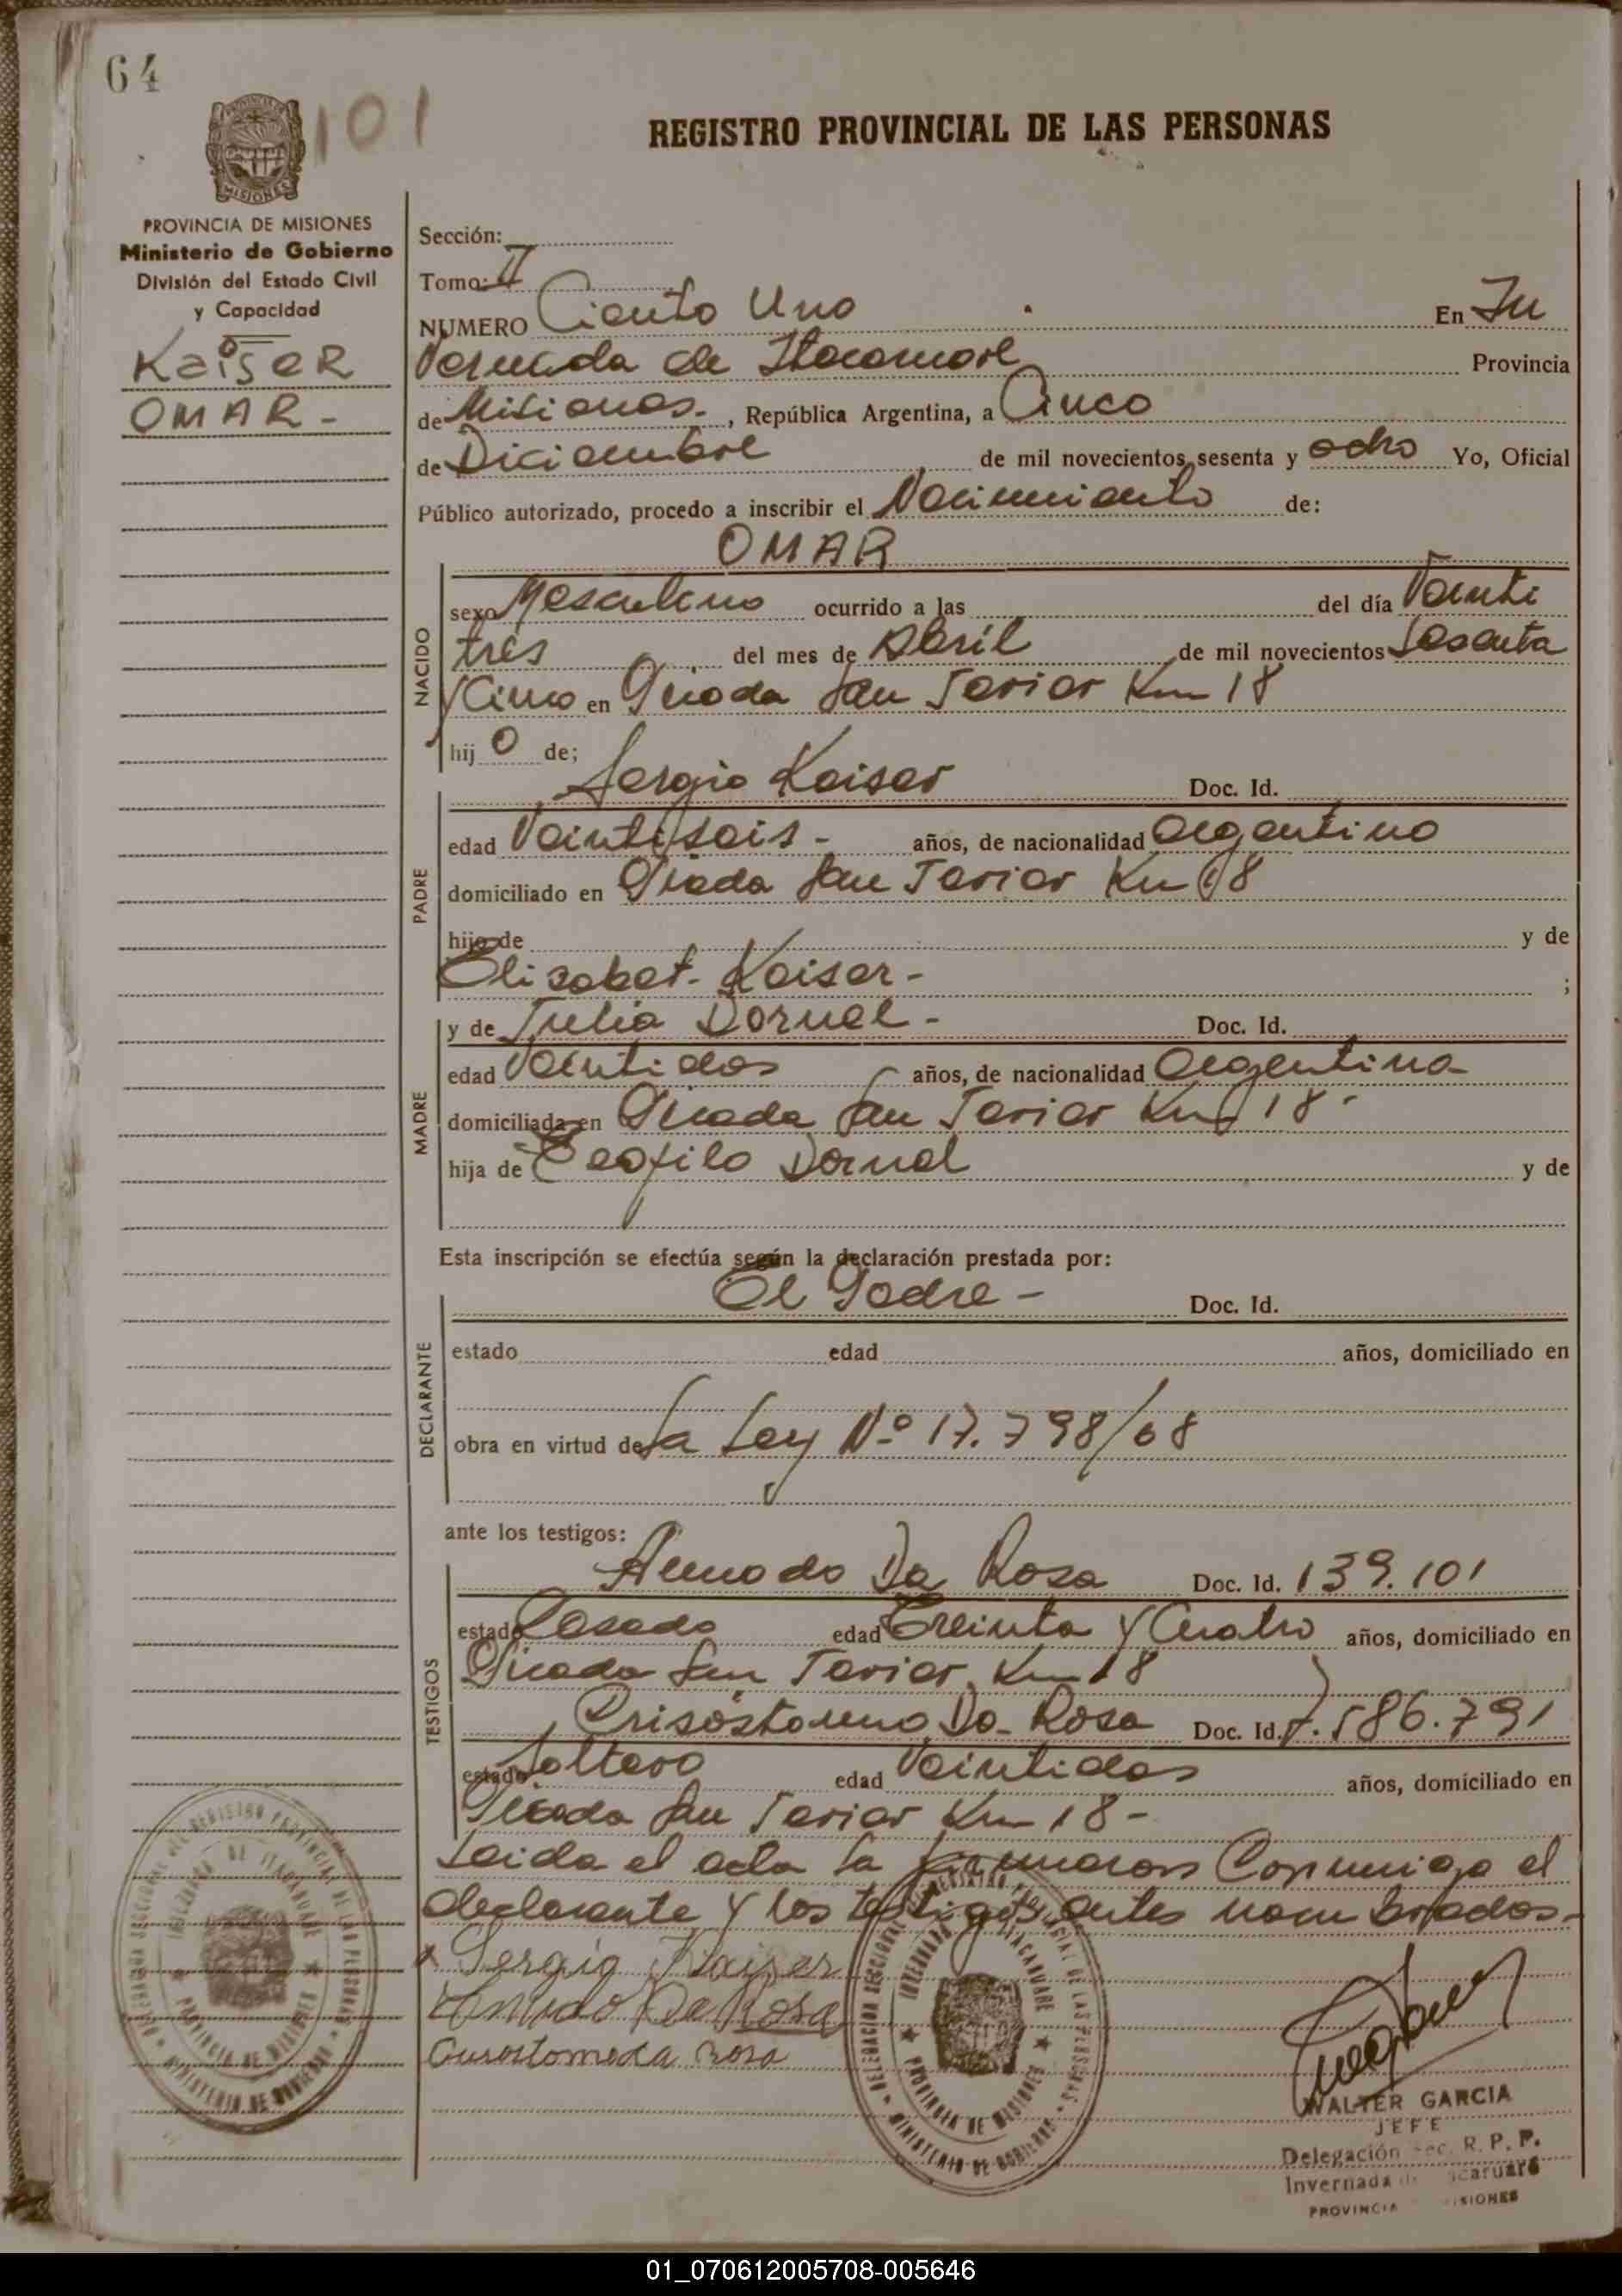 64
101
REGISTRO PROVINCIAL DE LAS PERSONAS
MISIONES
PROVINCIA DE MISIONES
Ministerio de Gobierno
División del Estado Civil
y Capacidad
KaiSER
OMAR -
Sección:
Tomo: II
NUMERO Ciento Uno En In
vernada de Itacaruare Provincia
de Misiones. , República Argentina, a Cinco
de Diciembre de mil novecientos sesenta y ocho Yo, Oficial
Público autorizado, procedo a inscribir el Nacimiento de:
OMAR
NACIDO
sexo Masculino ocurrido a las del día Veinti
tres del mes de Abril de mil novecientos Sesenta
y Cinco en Picada San Javier Km 18
hij o de;
Sergio Kaiser Doc. Id.
PADRE
edad Veintiseis - años, de nacionalidad Argentino
domiciliado en Picada San Javier Km 18
hijo de y de
Elisabet - Kaiser - ;
MADRE
y de Julia Dornel - Doc. Id.
edad Veintidos años, de nacionalidad Argentina
domiciliada en Picada San Javier Km 18 -
hija de Teofilo Dornel y de
Esta inscripción se efectúa según la declaración prestada por:
DECLARANTE
El Padre - Doc. Id.
estado edad años, domiciliado en
obra en virtud de la Ley Nº 17.798/68
ante los testigos:
TESTIGOS
Da Rosa Doc. Id. 139.101
estado Casado edad Treinta y Cuatro años, domiciliado en
Picada San Javier Km 18
Crisóstomo Da Rosa Doc. Id. 7.586.791
estado Soltero edad Veintidos años, domiciliado en
Picada San Javier Km 18 -
Leida el acta la firmaron Conmigo el
declarante y los testigos antes nombrados -
Sergio Kaiser
Da Rosa
WALTER GARCIA
JEFE
Delegación Sec. R. P. P.
Invernada
PROVINCIA
01_070612005708-005646